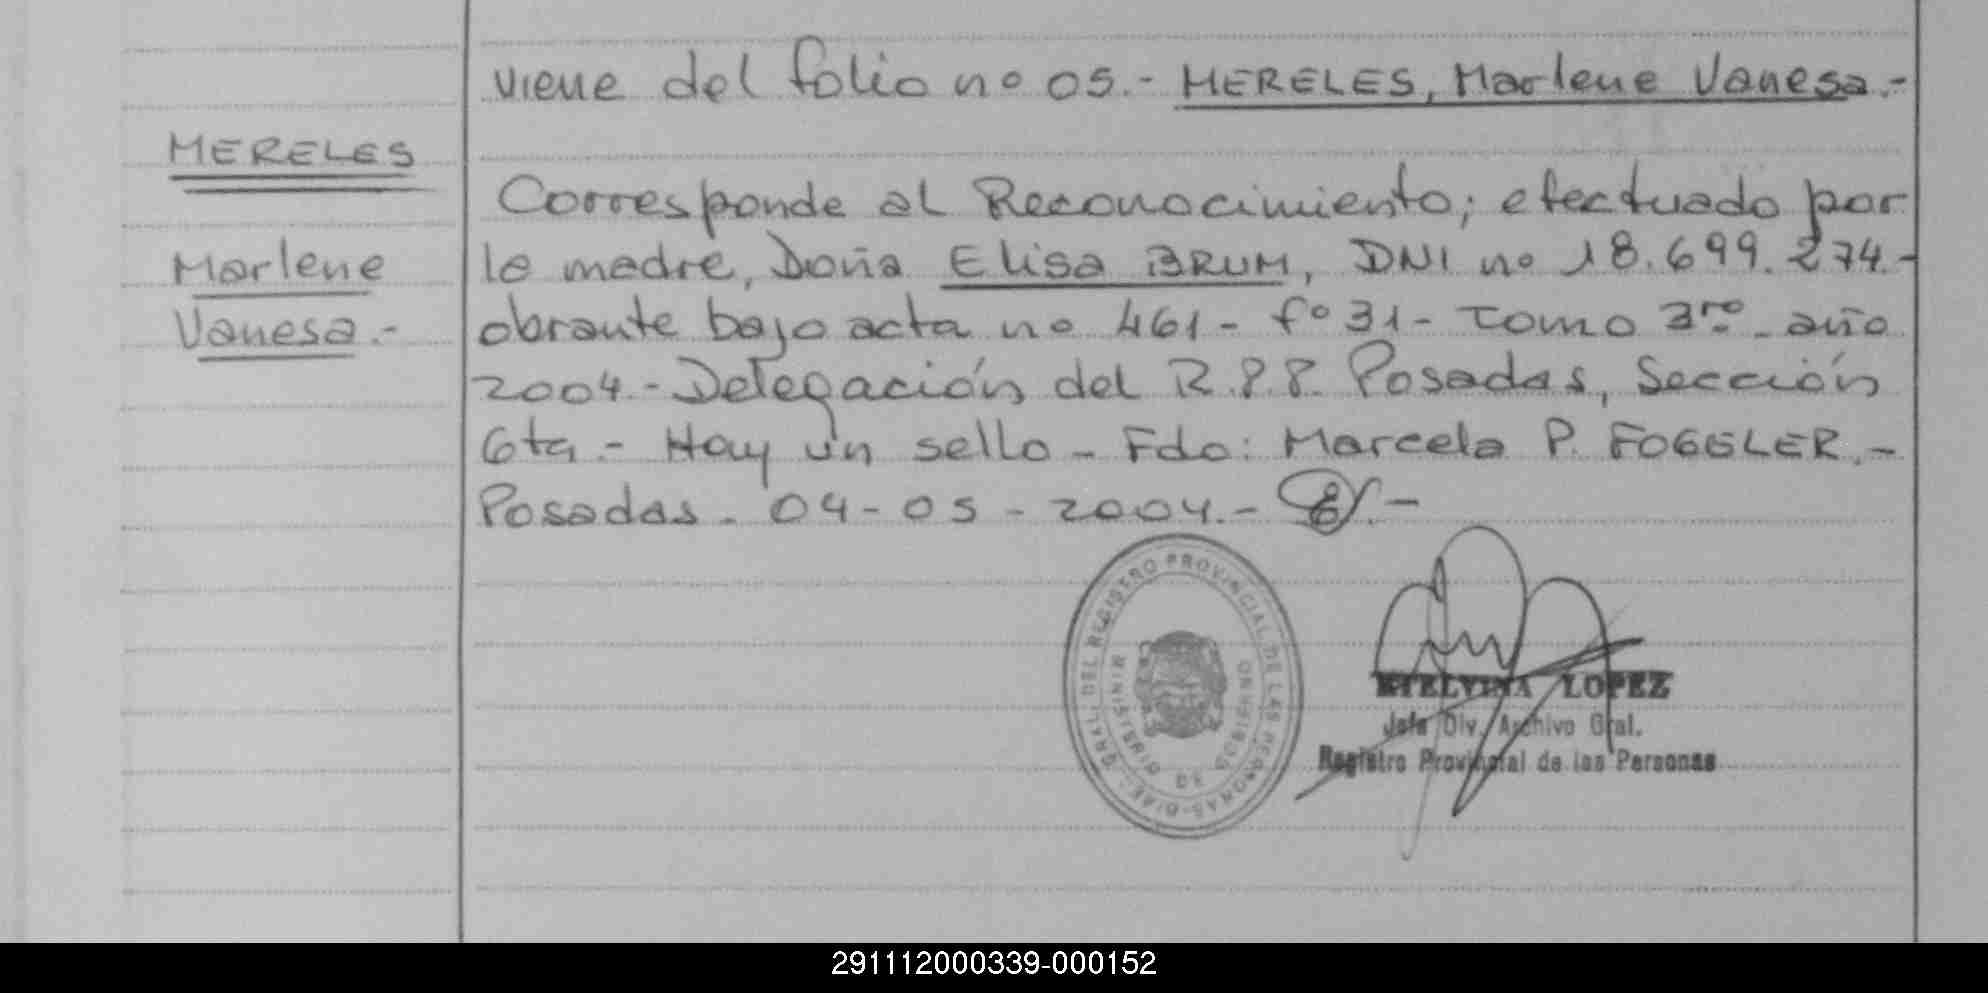 viene del folio no 05.- MERELES, Marlene Vanesa.-
MERELES
Marlene
Vanesa.-
Corresponde al Reconocimiento; efectuado por
la madre, Doña Elisa BRUM, DNI no 18.699.274.-
obrante bajo acta no 461- fo 31- Tomo 3ro - año
2004.- Delegación del R.P.P. Posadas, Sección
6ta.- Hay un sello - Fdo: Marcela P. FOGELER.-
Posadas. 04-05-2004.-
GRAL. DEL REGISTRO PROVINCIAL DE LAS PERSONAS
MINISTERIO DE GOBIERNO
ETELVINA LOPEZ
Jefa Div. Archivo Gral.
Registro Provincial de las Personas
291112000339-000152